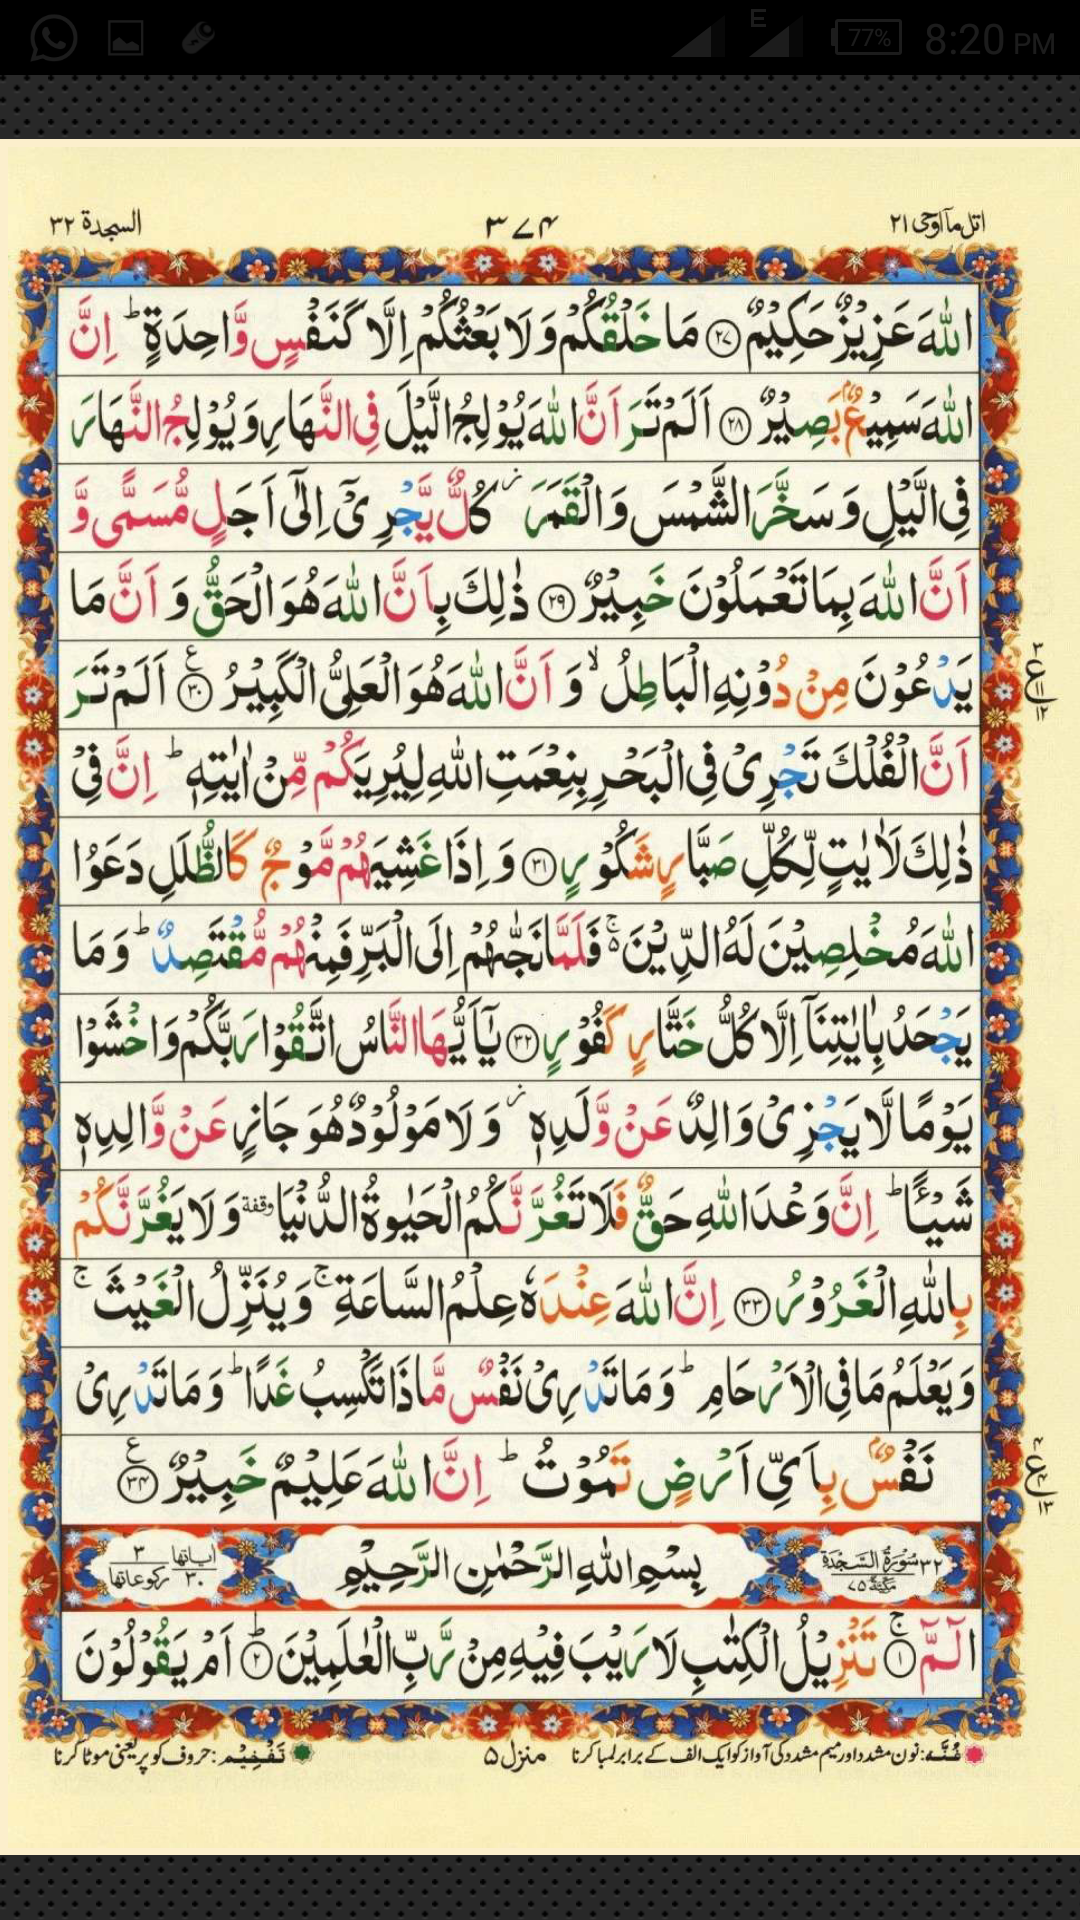 77% 8:20 PM
E
اتل مآ اوحی ۲۱ ۳۷۴ السجدۃ ۳۲
اللّٰهَ عَزِيْزٌ حَكِيْمٌ ۝۲۷ مَا خَلْقُكُمْ وَ لَا بَعْثُكُمْ اِلَّا كَنَفْسٍ وَّاحِدَةٍ ؕ اِنَّ
اللّٰهَ سَمِيْعٌۢ بَصِيْرٌ ۝۲۸ اَلَمْ تَرَ اَنَّ اللّٰهَ يُوْلِجُ الَّيْلَ فِى النَّهَارِ وَ يُوْلِجُ النَّهَارَ
فِى الَّيْلِ وَ سَخَّرَ الشَّمْسَ وَ الْقَمَرَ ؗ كُلٌّ يَّجْرِىْۤ اِلٰۤى اَجَلٍ مُّسَمًّى وَّ
اَنَّ اللّٰهَ بِمَا تَعْمَلُوْنَ خَبِيْرٌ ۝۲۹ ذٰلِكَ بِاَنَّ اللّٰهَ هُوَ الْحَقُّ وَ اَنَّ مَا
يَدْعُوْنَ مِنْ دُوْنِهِ الْبَاطِلُ ۙ وَ اَنَّ اللّٰهَ هُوَ الْعَلِىُّ الْكَبِيْرُ ۝۳۰ ع اَلَمْ تَرَ
۳ ع ۱۱ ۱۲
اَنَّ الْفُلْكَ تَجْرِىْ فِى الْبَحْرِ بِنِعْمَتِ اللّٰهِ لِيُرِيَكُمْ مِّنْ اٰيٰتِهٖ ؕ اِنَّ فِىْ
ذٰلِكَ لَاٰيٰتٍ لِّكُلِّ صَبَّارٍ شَكُوْرٍ ۝۳۱ وَ اِذَا غَشِيَهُمْ مَّوْجٌ كَالظُّلَلِ دَعَوُا
اللّٰهَ مُخْلِصِيْنَ لَهُ الدِّيْنَ ۬ۚ فَلَمَّا نَجّٰىهُمْ اِلَى الْبَرِّ فَمِنْهُمْ مُّقْتَصِدٌ ؕ وَ مَا
يَجْحَدُ بِاٰيٰتِنَاۤ اِلَّا كُلُّ خَتَّارٍ كَفُوْرٍ ۝۳۲ يٰۤاَيُّهَا النَّاسُ اتَّقُوْا رَبَّكُمْ وَ اخْشَوْا
يَوْمًا لَّا يَجْزِىْ وَالِدٌ عَنْ وَّلَدِهٖ ؗ وَ لَا مَوْلُوْدٌ هُوَ جَازٍ عَنْ وَّالِدِهٖ
شَيْـًٔا ؕ اِنَّ وَعْدَ اللّٰهِ حَقٌّ فَلَا تَغُرَّنَّكُمُ الْحَيٰوةُ الدُّنْيَا وقفة وَ لَا يَغُرَّنَّكُمْ
بِاللّٰهِ الْغَرُوْرُ ۝۳۳ اِنَّ اللّٰهَ عِنْدَهٗ عِلْمُ السَّاعَةِ ۚ وَ يُنَزِّلُ الْغَيْثَ ۚ
وَ يَعْلَمُ مَا فِى الْاَرْحَامِ ؕ وَ مَا تَدْرِىْ نَفْسٌ مَّا ذَا تَكْسِبُ غَدًا ؕ وَ مَا تَدْرِىْ
نَفْسٌۢ بِاَىِّ اَرْضٍ تَمُوْتُ ؕ اِنَّ اللّٰهَ عَلِيْمٌ خَبِيْرٌ ۝۳۴ ع
۴ ع ۴ ۱۳
۳۲ سُوْرَةُ السَّجْدَةِ مَكِّيَّةٌ ۷۵ بِسْمِ اللّٰهِ الرَّحْمٰنِ الرَّحِيْمِ اٰیاتها ۳۰ رکوعاتها ۳
الٓمّٓ ۝۱ ۚ تَنْزِيْلُ الْكِتٰبِ لَا رَيْبَ فِيْهِ مِنْ رَّبِّ الْعٰلَمِيْنَ ۝۲ ؕ اَمْ يَقُوْلُوْنَ
غُنَّہ: نون مشدد اور میم مشدد کی آواز کو ایک الف کے برابر لمبا کرنا منزل ۵ تَفْخِیْم: حروف کو پُر یعنی موٹا کرنا